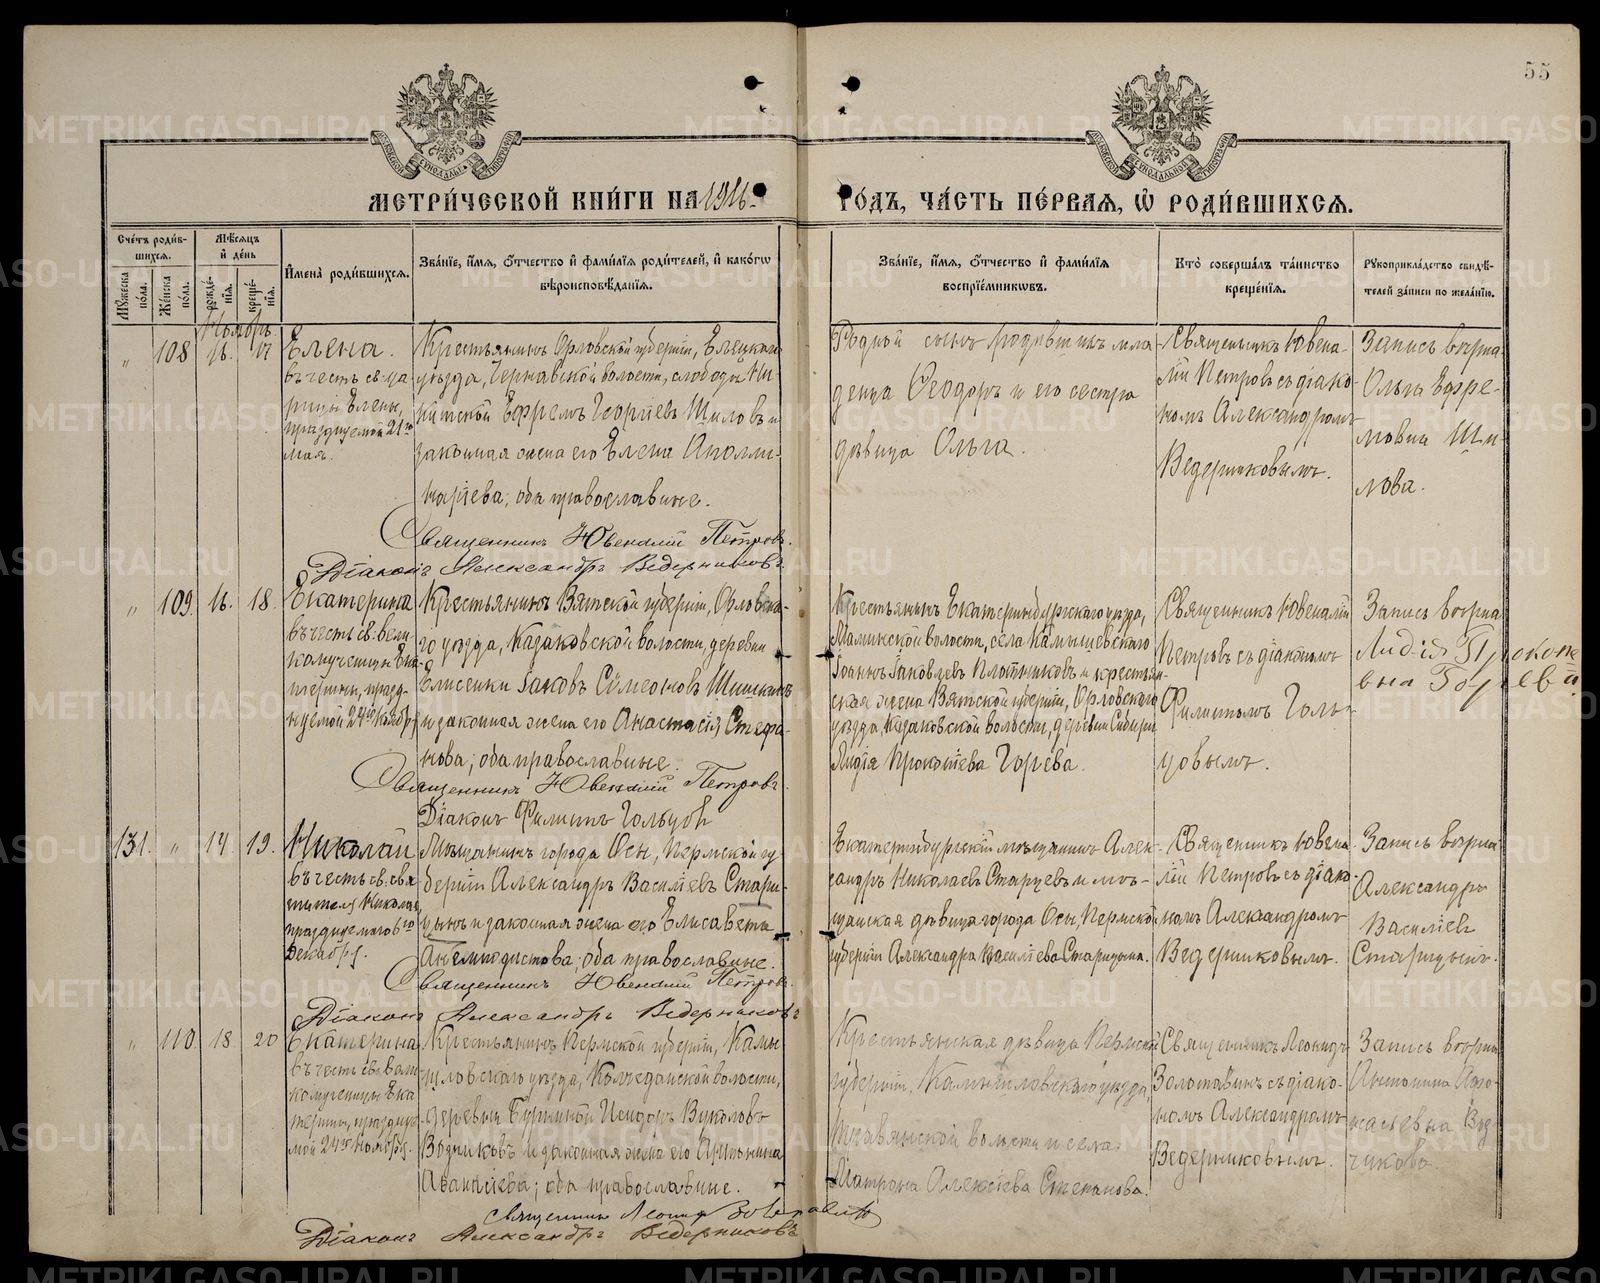 55
МОСКОВСКОЙ СѴНОДАЛЬНОЙ ТИПОГРАФІИ
МОСКОВСКОЙ СѴНОДАЛЬНОЙ ТИПОГРАФІИ
МЕТРИ́ЧЕСКОЙ КНИ́ГИ НА 1916
ГО́ДЪ, ЧА́СТЬ ПЕ́РВАѦ, Ѡ҆ РОДИ́ВШИХСѦ.
Сче́тъ роди́в-
шихся.
Мѣ́сяцъ
и҆ де́нь
Мꙋ́жеска
по́ла.
Же́нска
по́ла.
рожде́-
нїя.
креще́-
нїя.
И҆мена̀ роди́вшихся.
Зва́нїе, и҆́мя, ѻ҆́тчество и҆ фами́лїя роди́телей, и҆ како́гѡ
вѣроисповѣ́данїя.
Зва́нїе, и҆́мя, ѻ҆́тчество и҆ фами́лїя
воспрїе́мникѡвъ.
Кто̀ соверша́лъ та́инство
креще́нїя.
Рꙋкоприкла́дство свидѣ́-
телей за́писи по жела́нїю.
Ноябрь
„ 108 16. 17
Елена.
въ честь св. ца-
рицы Елены,
празднуемой 21го
мая.
Крестьянинъ Орловской губерніи, Елецкаго
уѣзда, Чернавской волости, слободы Ни-
китской Ефремъ Георгіевъ Шиловъ и
законная жена его Елена Аполли-
наріева; оба православные.
Священникъ Ювеналій Петровъ.
Діаконъ Александръ Ведерниковъ
Родной сынъ родившихъ мла-
денца Ѳеодоръ и его сестра
дѣвица Ольга.
Священникъ Ювена-
лій Петровъ съ діако-
номъ Александромъ
Ведерниковымъ.
Запись вѣрна
Ольга Ефре-
мовна Ши-
лова.
„ 109. 16. 18.
Екатерина
въ честь св. вели-
комученицы Ека-
терины, празд-
нуемой 24го Ноября
Крестьянинъ Вятской губерніи, Орловска-
го уѣзда, Казаковской волости, деревни
Елисенки Іаковъ Сѵмеоновъ Шишкинъ
и законная жена его Анастасія Стефа-
нова; оба православные.
Священникъ Ювеналій Петровъ.
Діаконъ Филиппъ Гольцовъ
Крестьянинъ Екатеринбургскаго уѣзда,
Маминской волости, села Камышевскаго
Іоаннъ Іаковлевъ Плотниковъ и крестьян-
ская жена Вятской губерніи, Орловскаго
уѣзда, Казаковской волости, деревни Сибири
Лидія Прокопіева Горева.
Священникъ Ювеналій
Петровъ съ діакономъ
Филиппомъ Голь-
цовымъ.
Запись вѣрна
Лидія Прокопь
евна Горева
131. „ 14. 19.
Николай
въ честь св. свя-
тителя Николая,
празднуемаго 6го
Декабря.
Мѣщанинъ города Осы, Пермской гу-
берніи Александръ Василіевъ Стари-
цынъ и законная жена его Елисавета
Ангемподистова; оба православные.
Священникъ Ювеналій Петровъ.
Діаконъ Александръ Ведерниковъ
Екатеринбургскій мѣщанинъ Алек-
сандръ Николаевъ Старцевъ и мѣ-
щанская дѣвица города Осы, Пермской
губерніи Александра Василіева Старицына.
Священникъ Ювена-
лій Петровъ съ діако-
номъ Александромъ
Ведерниковымъ.
Запись вѣрна
Александръ
Василіевъ
Старицынъ.
„ 110 18 20
Екатерина
въ честь св. вели-
комученицы Ека-
терины, праздну-
мой 24го Ноября.
Крестьянинъ Пермской губерніи, Камы-
шловскаго уѣзда, Колчеданской волости,
деревни Бурниной Исидоръ Вуколовъ
Водниковъ и законная жена его
оба православные.
Священникъ Леонидъ Золотавинъ
Діаконъ Александръ Ведерниковъ
Крестьянская дѣвица Пермской
губерніи, Камышловскаго уѣзда,
Травянской волости и села
Матрона Алексіева Степанова.
Священникъ Леонидъ
Золотавинъ съ діако-
номъ Александромъ
Ведерниковымъ.
Запись вѣрна
Антонина
METRIKI.GASO-URAL.RU